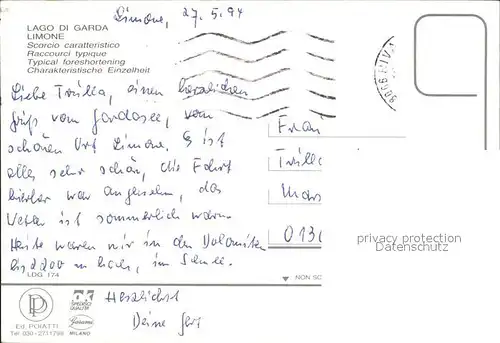 Limone, 27.5.94
LAGO DI GARDA
LIMONE
Scorcio caratteristico
Raccourci typique
Typical foreshortening
Charakteristische Einzelheit
Liebe Trulla, einen herzlichen
Gruß vom Gardasee, vom
schönen Ort Limone. Es ist
alles sehr schön, die Fahrt
hierher war angenehm, das
Wetter ist sommerlich warm.
Heute waren wir in den Dolomiten
bis 2200 m hoch, im Schnee.
Frau
Trulla
0130
privacy protection
Datenschutz
LDG 174
NON SC
Herzlichst
Deine
Ed. POIATTI
Tel. 030-2731798
MILANO